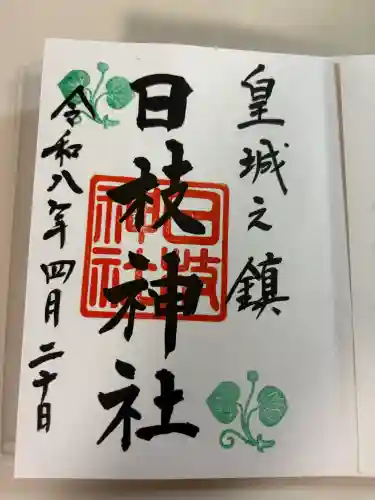 皇城之鎮
日枝神社
日枝神社
令和八年四月二十日